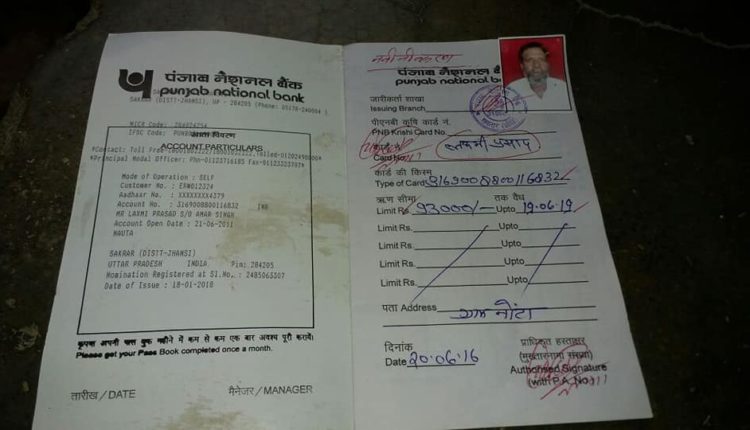 पंजाब नैशनल बैंक
punjab national bank
SAKRAR (DISTT-JHANSI), UP - 284205
लेखा विवरण
ACCOUNT PARTICULARS
Mode of Operation : SELF
Customer No.
Aadhaar No. : XXXXXXXX4379
Account No. : 3169008800116832
MR LAXMI PRASAD S/O AMAR SINGH
Account Open Date : 21-06-2011
NAUTA
SAKRAR (DISTT-JHANSI)
UTTAR PRADESH INDIA. Pin: 284205
Nomination Registered at Sl.No. :
Date of Issue : 18-01-2018
कृपया अपनी पास बुक महीने में कम से कम एक बार अवश्य पूरी करायें।
Please get your Pass Book completed once a month.
तारीख / DATE
मैनेजर / MANAGER
नवीनीकरण
पंजाब नैशनल बैंक
punjab national bank
जारीकर्ता शाखा
Issuing Branch
पीएनबी कृषि कार्ड नं.
PNB Krishi Card No.
Card No.
लक्ष्मी प्रसाद
कार्ड की किस्म
Type of Card 3169008800116832
ऋण सीमा तक वैध
Limit Rs. 93000/- Upto 19.06.19
Limit Rs. Upto
Limit Rs. Upto
Limit Rs. Upto
Limit Rs. Upto
पता Address ग्राम नौटा
दिनांक
Date 20.06.16
प्राधिकृत हस्ताक्षर
(मुख्तारनामा संख्या)
Authorised Signature
(with P.A. No.)